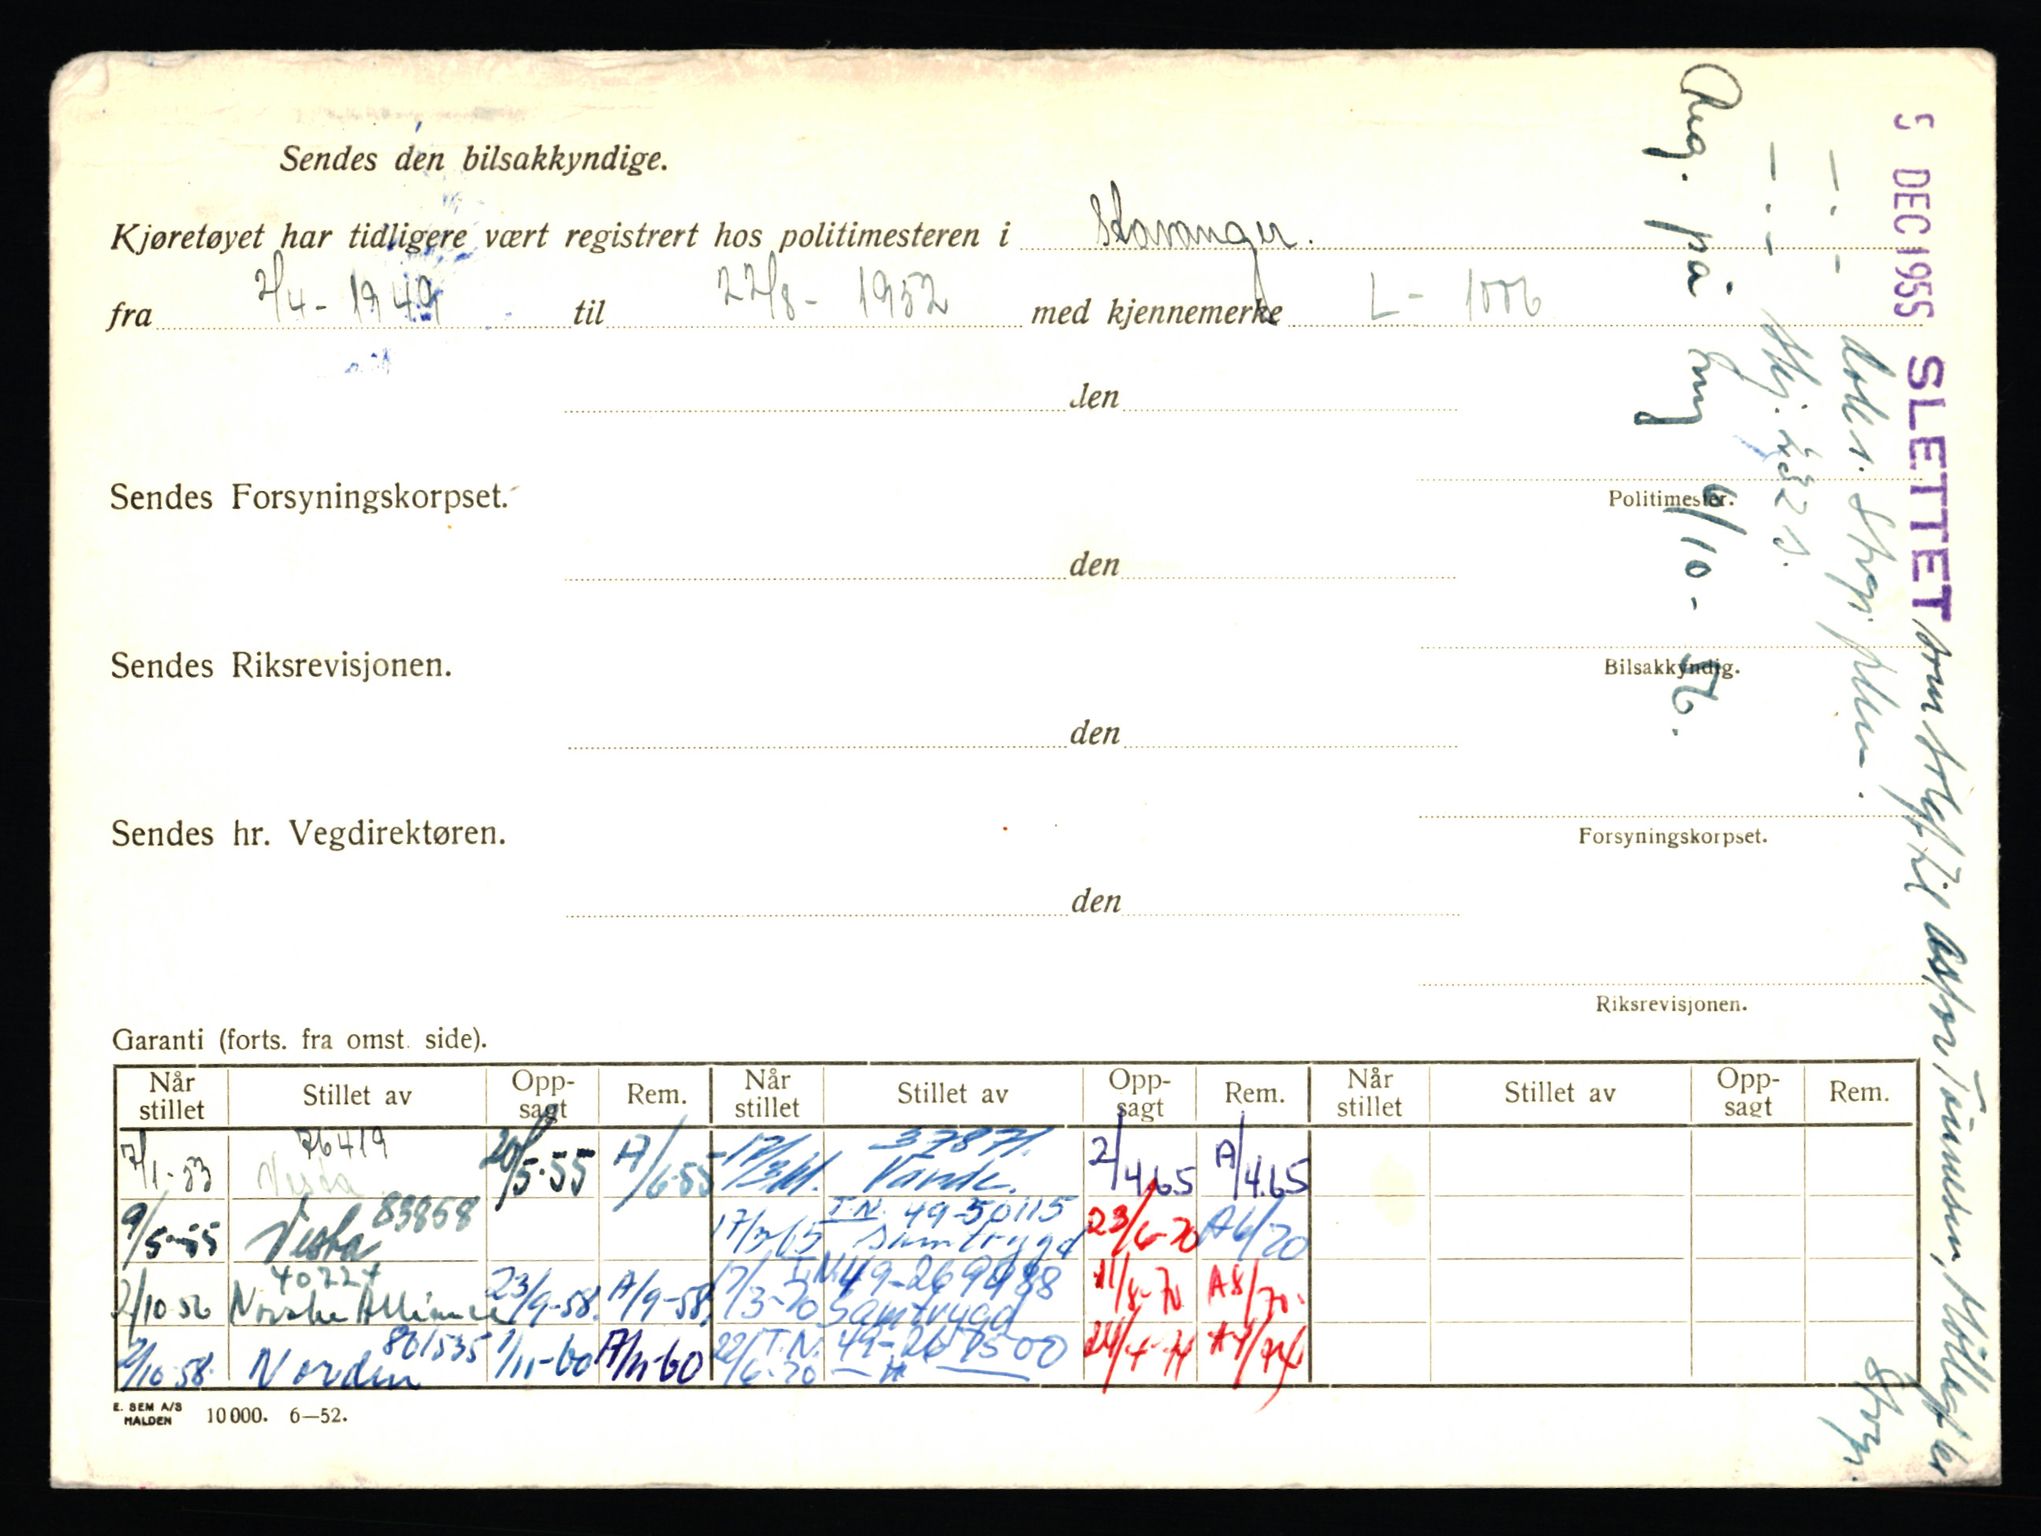 Sendes den bilsakkyndige.
Kjøretøyet har tidligere vært registrert hos politimesteren i Stavanger.
fra 2/4 - 1949 til 22/8 - 1952 med kjennemerke L - 1006
den
Sendes Forsyningskorpset.
Politimester.
den
Sendes Riksrevisjonen.
Bilsakkyndig.
den
Sendes hr. Vegdirektøren.
Forsyningskorpset.
den
Riksrevisjonen.
Garanti (forts. fra omst. side).
Når stillet Stillet av Opp-sagt Rem. Når stillet Stillet av Opp-sagt Rem. Når stillet Stillet av Opp-sagt Rem.
7/1-53 76419 Vesta 20/5-55 A/6-55 17/3 37871. Varde. 2/4.65 A/4.65
9/5-55 Vesta 83858 17/3/65 T.N. 49-50115 Samtrygd 23/6-70 A6/70
2/10 56 40224 Norske Alliance 23/9-58. A/9-58. 17/3-70 T.N. Samtrygd 11/8-70 A8/70.
2/10-58. 801535 Norden 1/11-60 A/11-60 22/6-70 T.N. 49-267500 — " —
E. SEM A/S HALDEN 10000. 6—52.
5 DEC 1955 SLETTET
Reg. på ny 4/10-56.